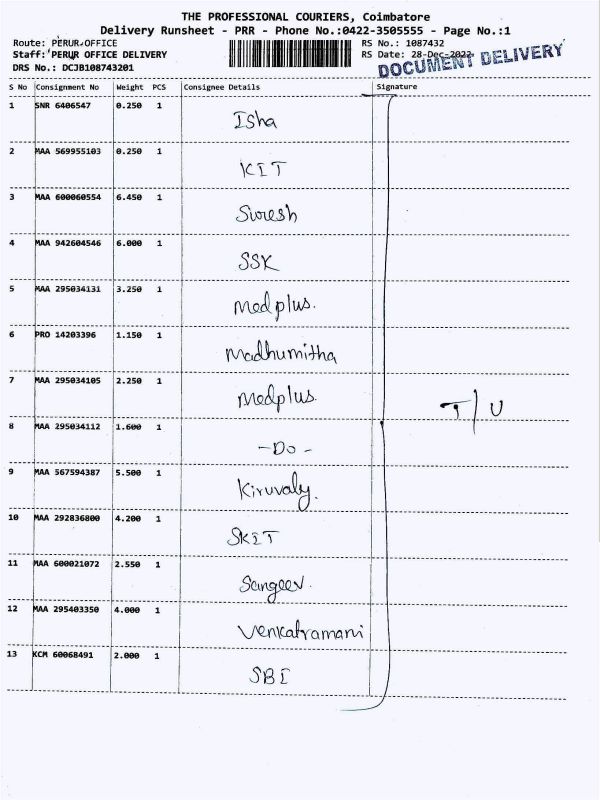 THE PROFESSIONAL COURIERS, Coimbatore
Delivery Runsheet - PRR - Phone No.:0422-3505555 - Page No.:1
Route: PERUR OFFICE
RS No.: 1087432
Staff: PERUR OFFICE DELIVERY
RS Date: 28-Dec-2022
DRS No.: DCJB108743201
DOCUMENT DELIVERY
S No Consignment No Weight PCS Consignee Details Signature
1 SNR 6406547 0.250 1
Isha
2 MAA 569955103 0.250 1
KIT
3 MAA 600060554 6.450 1
Suresh
4 MAA 942604546 6.000 1
SSK
5 MAA 295034131 3.250 1
Medplus.
6 PRO 14203396 1.150 1
Madhumitha
7 MAA 295034105 2.250 1
Medplus.
T/U
8 MAA 295034112 1.600 1
-Do-
9 MAA 567594387 5.500 1
Kiruvaly.
10 MAA 292836800 4.200 1
SKIT
11 MAA 600021072 2.550 1
Sangeev.
12 MAA 295403350 4.000 1
Venkatramani
13 KCM 60068491 2.000 1
SBI